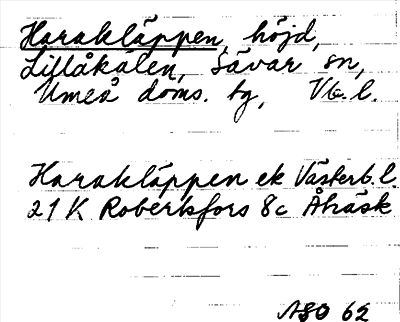 Harakläppen, höjd,
Lillåkälen, Sävar sn,
Umeå doms. tg, Vb. l.
Harakläppen ek Västerb. l.
21 K Robertsfors 8c Åträsk
ASO 62